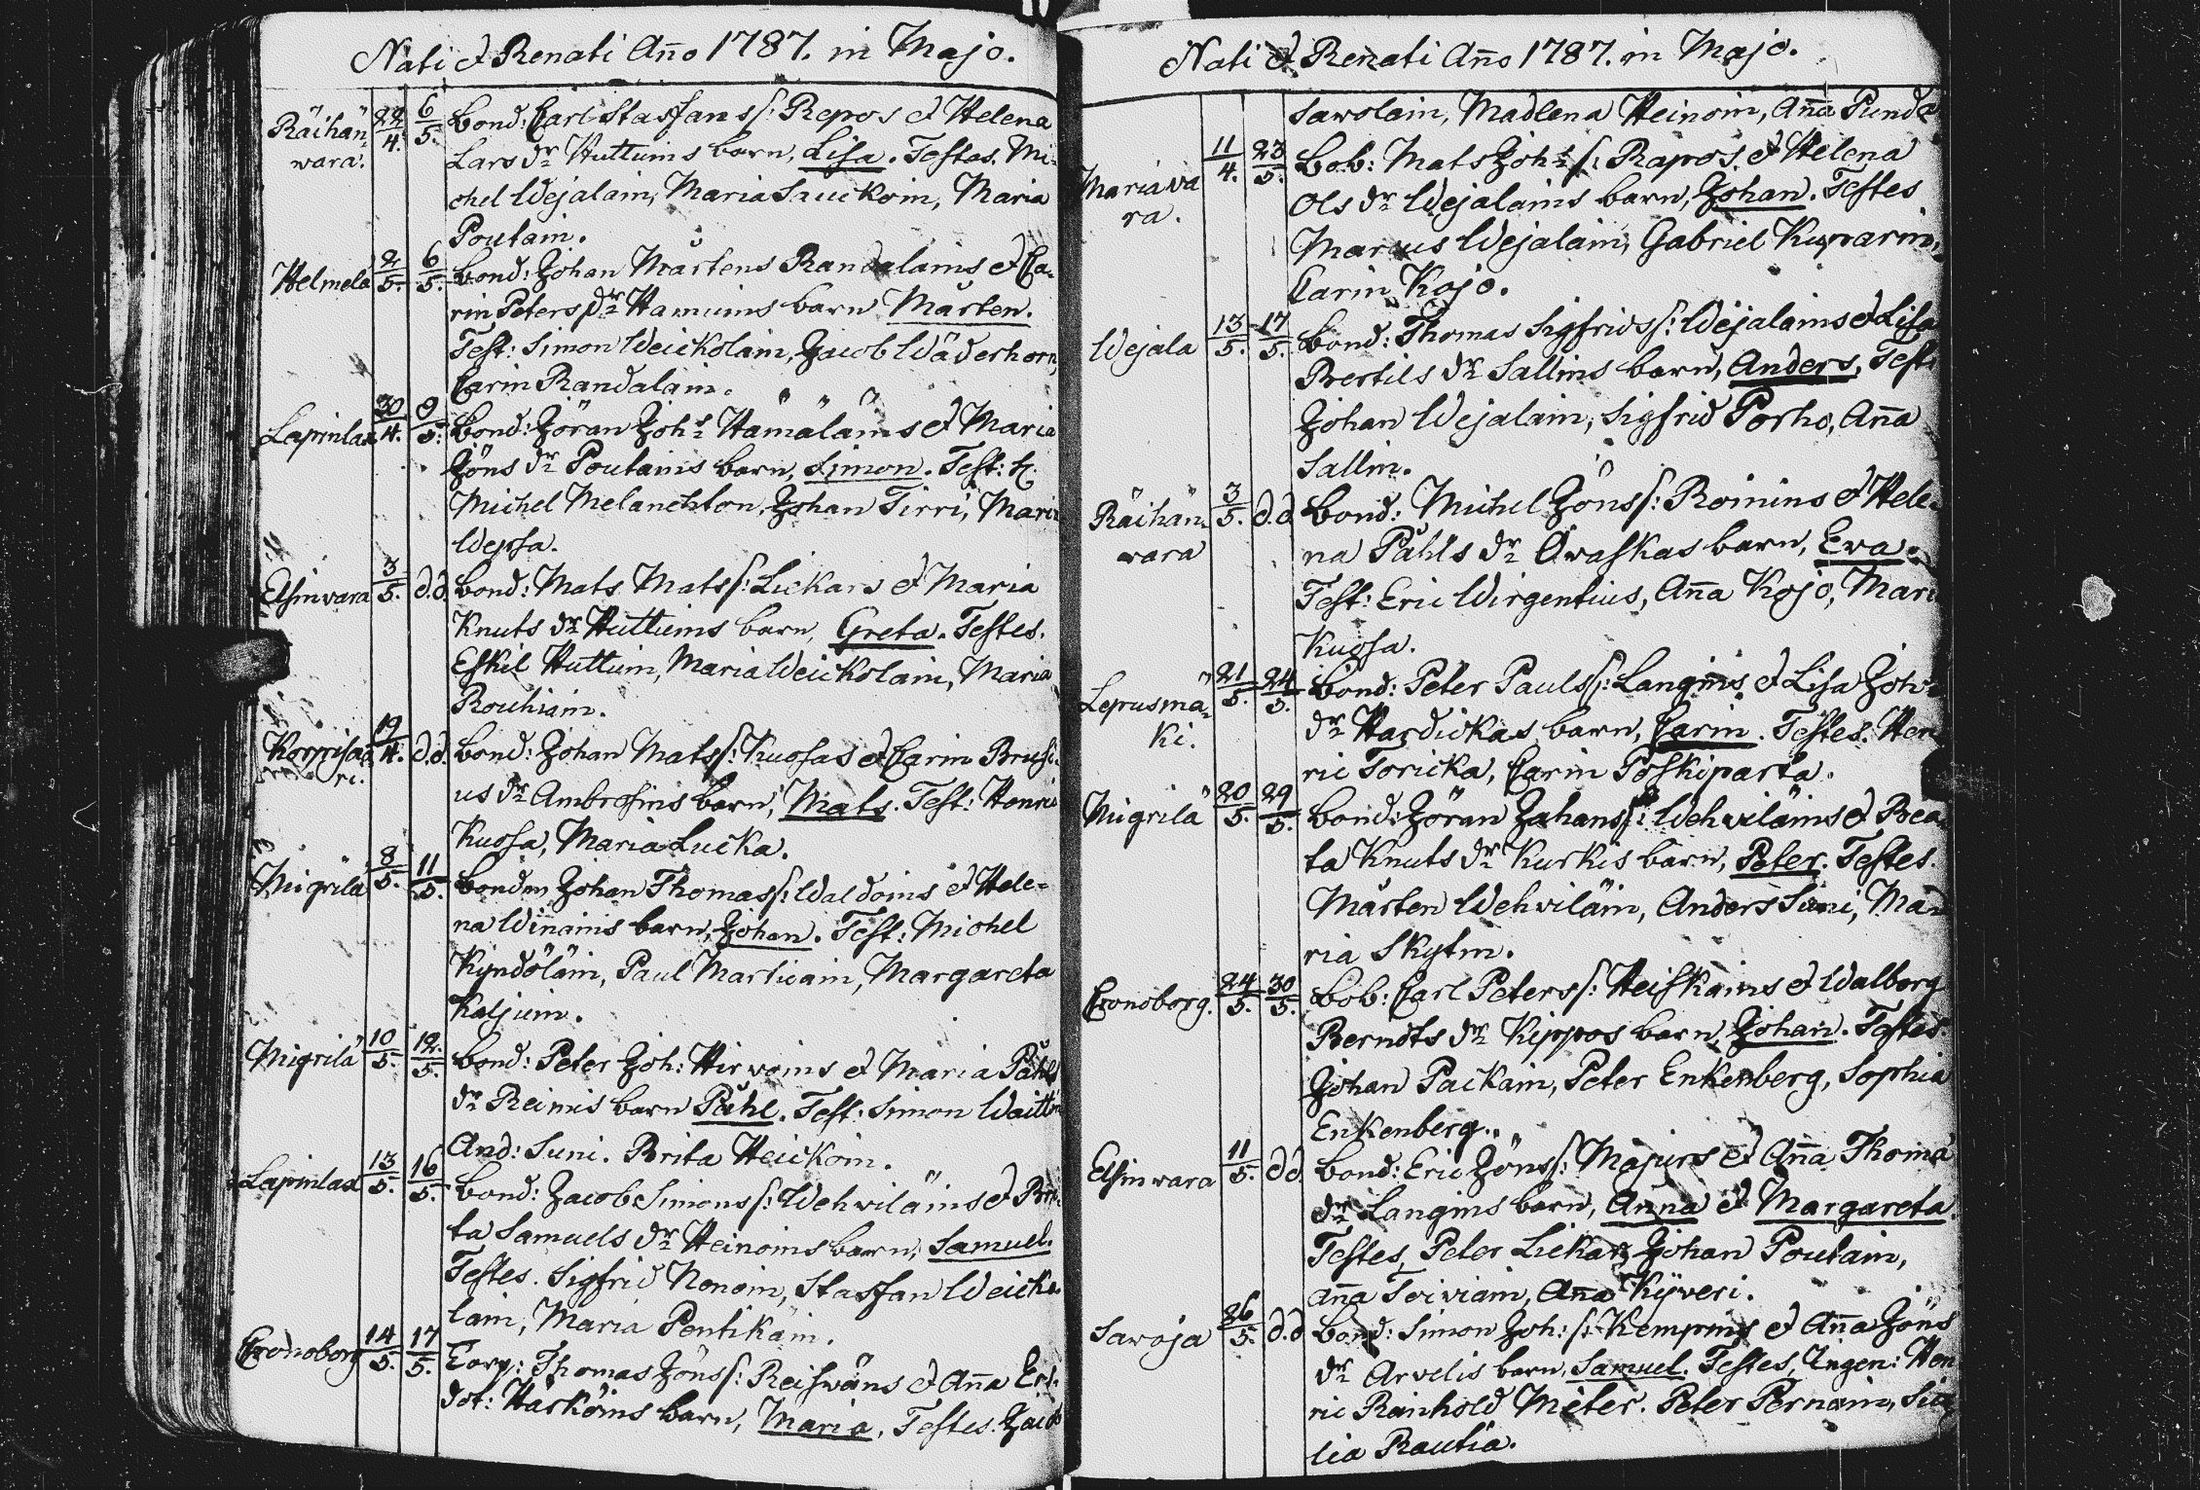 Nati & Renati Año 1787. in Majo.
Räihän- 22/4. 6/5. Bond: Carl Staffans s: Repos & Helena
wara. Lars dr Huttuins barn, Lisa. Testes. Mi-
chel Wejalain, Maria Sauckoin, Maria
Poutain.
Helmela 2/5. 6/5. Bond: Johan Mårtens Randalains & Ca-
rin Peters dr Hamuins barn Mårten.
Test: Simon Weickolain, Jacob Wäderhorn,
Carin Randalain.
Lapinlax 30/4. 9/5. Bond: Jöran Johs Hämäläins & Maria
Jöns dr Poutains barn, Simon. Test: H.
Michel Melanchton, Johan Tirri, Maria
Wepsa.
Elsinvara 3/5. d.d. Bond: Mats Mats s: Lickars & Maria
Knuts dr Huttuins barn, Greta. Testes.
Eskil Huttuin, Maria Weickolain, Maria
Rouhiain.
Korpisaa- 19/4. d.d. Bond: Johan Mats s: Kuosas & Carin Brusi-
ri. us dr Ambrosius barn, Mats. Test: Henric
Kuosa, Maria Lucka.
Migrilä 8/5. 11/5. Bonden Johan Thomas s: Waldoins & Hele-
na Winains barn, Johan. Test: Michel
Kyndöläin, Paul Marticain, Margareta
Kaljuin.
Migrilä 10/5. 12/5. Bond: Peter Joh: Hirvoins & Maria Påhls
dr Reinis barn Påhl. Test: Simon Waittin
And: Suni. Brita Heickoin.
Lapinlax 13/5. 16/5. Bond: Jacob Simons s: Wehviläins & Bri-
ta Samuels dr Heinoins barn, Samuel.
Testes. Sigfrid Nonoin, Staffan Weicko-
lain, Maria Pentikäin.
Cronoborg 14/5. 17/5. Corp: Thomas Jöns s: Reiswäns & Aña Er:
dot: Härköins barn, Maria, Testes. Jacob
Nati & Renati Año 1787. in Majo.
Savolain, Madlena Heinoin, Aña Punda
Mariava 11/4. 23/5. Bob: Mats Johs s: Rapos & Helena
ra. Ols dr Wejalains barn, Johan. Testes
Marcus Wejalain, Gabriel Kuparin,
Carin Kojo.
Wejala 13/5. 17/5. Bond: Thomas Sigfrids s: Wejalains & Lisa
Bertils dr Sallins barn, Anders, Test:
Johan Wejalain, Sigfrid Porho, Aña
Sallin.
Räihän- 3/5. d.d. Bond: Michel Jöns s: Roinins & Hele-
vara na Påhls dr Ovaskas barn, Eva.
Test: Eric Wirgentius, Aña Kojo, Mari
Kuosa.
Lepusmä- 21/5. 24/5. Bond: Peter Pauls s: Langins & Lisa Joh:
ki. dr Hardickas barn, Carin. Testes. Hen
ric Toricka, Carin Poskiparta.
Migrilä 20/5. 29/5. Bond: Jöran Johans s: Wehviläins & Bea
ta Knuts dr Kurkis barn, Peter. Testes.
Mårten Wehviläin, Anders Suni, Ma
ria Skyttn.
Cronoborg. 24/5. 30/5. Bob: Carl Peters s: Heiskains & Walborg
Berndts dr Kippos barn, Johan. Testes.
Johan Packain, Peter Enkenberg, Sophia
Enkenberg.
Elsinvara 11/5. d d Bond: Eric Jöns s: Majurs & Aña Thoma
dr Langins barn, Anna & Margareta.
Testes, Peter Lickar, Johan Poutain,
Aña Toiviain, Aña Kyveri.
Savoja 26/5. d.d Bond: Simon Joh: s: Kempins & Aña Jöns
dr Arvelis barn, Samuel. Testes, Ingen: Hen
ric Reinhold Meler. Peter Pernain, Sici
lia Rautia.